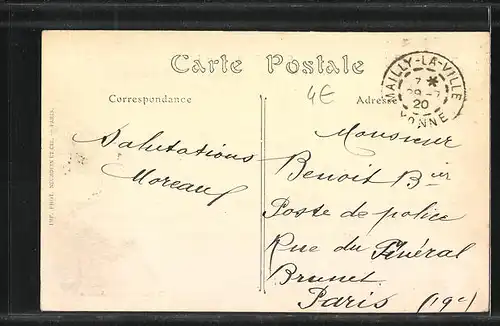 Carte Postale
MAILLY-LA-VILLE
7 *
29-7
20
YONNE
Correspondance
4€
Adresse
Salutations
Moreau
Monsieur
Benoit Bier
Poste de police
Rue du Général
Brunet
Paris (19e)
IMP. PHOT. NEURDEIN ET CIE. — PARIS.